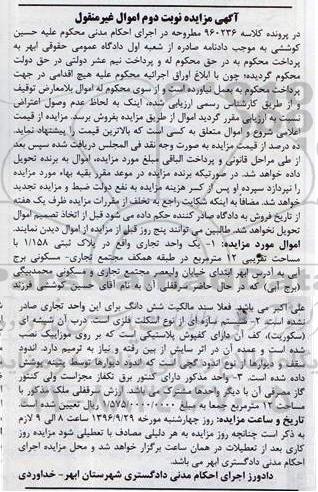 آگهی مزایده نوبت دوم اموال غیرمنقول
در پرونده کلاسه ۹۶۰۲۳۶ مطروحه در اجرای احکام مدنی محکوم علیه حسین
کوششی به موجب دادنامه صادره از شعبه اول دادگاه عمومی حقوقی ابهر به
پرداخت محکوم به در حق محکوم له و پرداخت نیم عشر دولتی در حق دولت
محکوم گردیده؛ چون با ابلاغ اوراق اجرائیه محکوم علیه هیچ اقدامی در جهت
پرداخت محکوم به بعمل نیاورده است و از سوی محکوم له اموال بلامعارض توقیف
و از طریق کارشناس رسمی ارزیابی شده، اینک به لحاظ عدم وصول اعتراض
نسبت به ارزیابی مقرر گردید اموال از طریق مزایده بفروش برسد. مزایده از قیمت
اعلامی شروع و اموال متعلق به کسی است که بالاترین قیمت را پیشنهاد نماید.
ده درصد از قیمت مزایده به صورت وجه نقد فی المجلس دریافت شده سپس بعد
از طی مراحل قانونی و پرداخت الباقی مبلغ مورد مزایده، اموال به برنده تحویل
داده خواهد شد. در صورتیکه برنده مزایده در موعد مقرر بقیه بهاء مورد مزایده
را نپردازد سپرده او پس از کسر هزینه مزایده به نفع دولت ضبط و مزایده تجدید
خواهد شد. مضافاً به اینکه شکایت راجع به تخلف از مقررات مزایده ظرف یک هفته
از تاریخ فروش به دادگاه صادر کننده حکم داده می شود قبل از اتخاذ تصمیم اموال
تحویل نخواهد شد. طالبین می توانند پنج روز قبل از مزایده از اموال دیدن نمایند.
اموال مورد مزایده: ۱- یک واحد تجاری واقع در پلاک ثبتی ۱/۱۵۸ با
مساحت تقریبی ۱۲ مترمربع در طبقه همکف مجتمع تجاری- مسکونی برج
آبی به آدرس ابهر ابتدای خیابان ولیعصر مجتمع تجاری و مسکونی محمدبیگی
(برج آبی) که در حال حاضر سرقفلی آن به نام آقای حسین کوششی فرزند
علی اکبر می باشد. فعلا سند مالکیت شش دانگ برای این واحد تجاری صادر
نشده است. ۲- سیستم سازه ای از نوع اسکلت فلزی است. درب آن شیشه ای
(سکوریت)، کف آن دارای کفپوش پلاستیکی است که بر روی موزاییک نصب
شده است و عمده آن در اثر سایش از بین رفته و نیاز به ترمیم دارد. اندود
سقف و دیوارها از نوع اندود گچی است که اندود دیوارها توسط پنبه پوشش
داده شده است. ۳- واحد مذکور دارای کنتور برق تکفاز مجزاست ولی کنتور
گاز مصرفی آن با دیگر واحدها مشترک می باشد. ارزش سرقفلی ملک مذکور با
مساحت ۱۲ مترمربع جمعا به مبلغ ۱/۵۷۵/۰۰۰/۰۰۰ ریال تعیین شده است.
تاریخ و ساعت مزایده: روز چهارشنبه مورخه ۱۳۹۶/۹/۲۹ ساعت ۸ الی ۹ لازم
به ذکر است چنانچه روز مزایده به هر دلیلی مصادف با تعطیلی شود مزایده روز
کاری بعد از تعطیلات در همان ساعت برگزار خواهد شد و محل مزایده اجرای
احکام مدنی دادگستری ابهر می باشد.
دادورز اجرای احکام مدنی دادگستری شهرستان ابهر- خداوردی